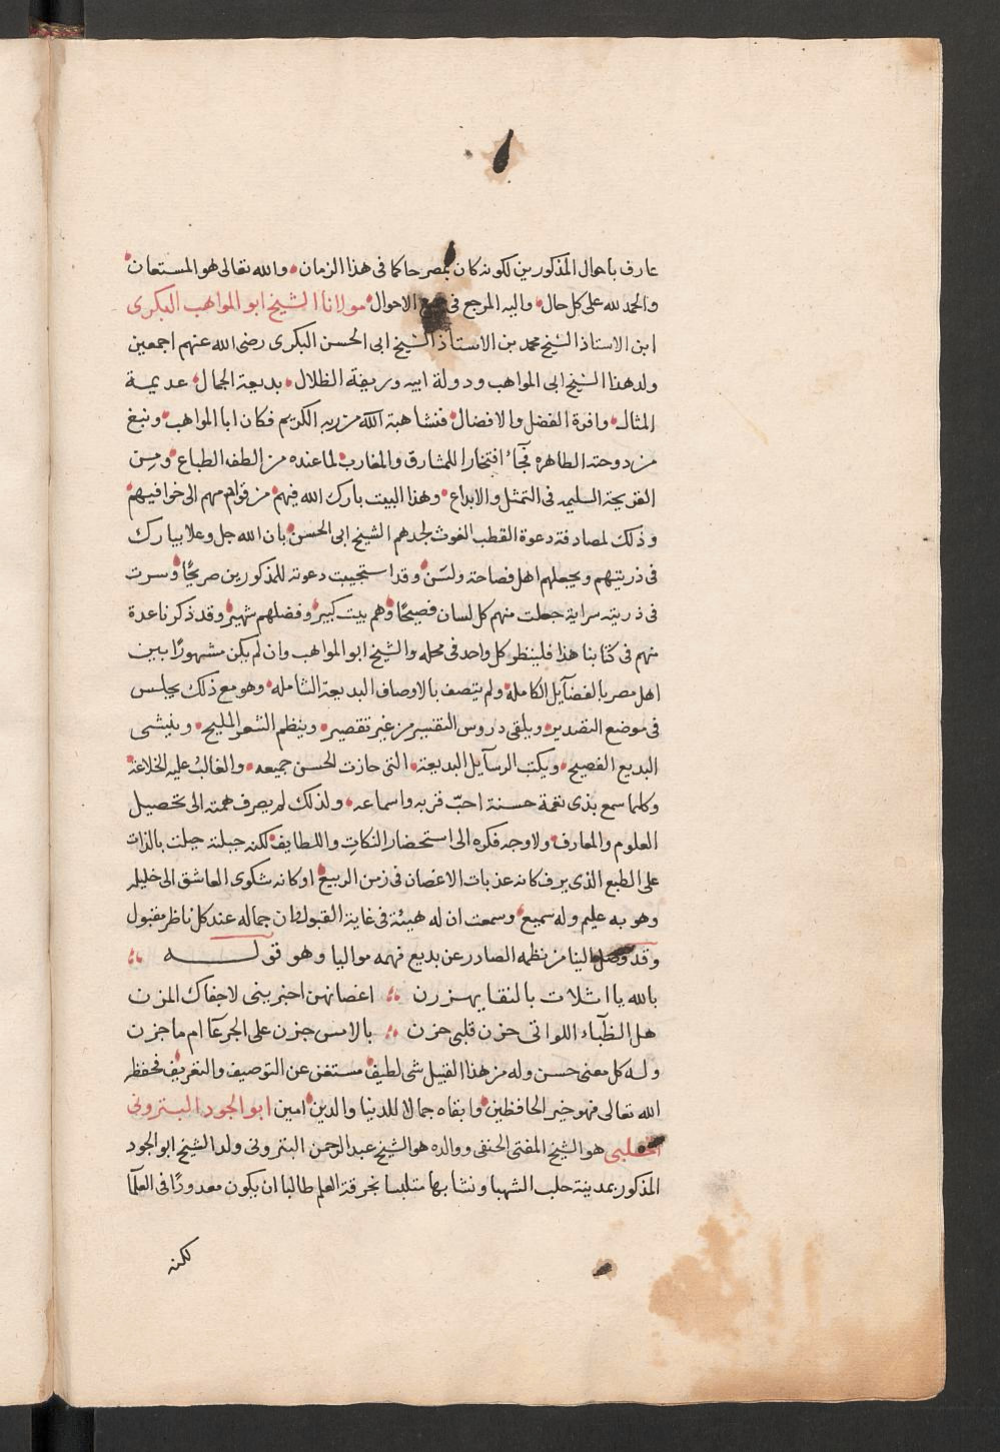 عارف باحوال المذكورين لكونه كان بمصر حاكما فى هذا الزمان والله تعالى هو المستعان
والحمد لله على كل حال واليه المرجع فى جميع الاحوال مولانا الشيخ ابو المواهب البكرى
ابن الاستاذ الشيخ محمد بن الاستاذ الشيخ ابى الحسن البكرى رضى الله عنهم اجمعين
ولد هذا الشيخ ابى المواهب ودولة ابيه وريفة الظلال بديعة الجمال عديمة
المثال وافرة الفضل والافضال فنشا هبة الله من ربه الكريم فكان ابا المواهب ونبغ
من دوحته الطاهره فجآء افتخارا للمشارق والمغارب لما عنده من الطف الطباع ومن
القريحة السليمه فى التمثل والابداع وهذا البيت بارك الله فيهم من قوادمهم الى خوافيهم
وذلك لمصادفة دعوة القطب الغوث لجدهم الشيخ ابى الحسن بان الله جل وعلا يبارك
فى ذريتهم ويجعلهم اهل فصاحة ولسن وقد استجيبت دعوته للمذكورين صريحًا وسرت
فى ذريته سراية جعلت منهم كل لسان فصيحًا وهم بيت كبير وفضلهم شهير وقد ذكرنا عدة
منهم فى كتابنا هذا فلينظر كل واحد فى محله والشيخ ابو المواهب وان لم يكن مشهورًا بين
اهل مصر بالفضآيل الكاملة ولم يتصف بالاوصاف البديعة الشامله وهو مع ذلك يجلس
فى موضع التصدير ويلقى دروس التفسير من غير تقصير وينظم الشعر المليح وينشى
البديع الفصيح ويكتب الرسآيل البديعة التى حازت الحسن جميعه والغالب عليه الخلاعة
وكلما سمع بذى نغمة حسنة احبّ قربه واسماعه ولذلك لم يصرف همته الى تحصيل
العلوم والمعارف ولا وجه فكره الى استحضار النكات واللطايف لكنه جبلته جبلت بالذات
على الطبع الذى يرف كانه عذبات الاغصان فى زمن الربيع او كانه شكوى العاشق الى خليله
وهو به عليم وله سميع وسمعت ان له هيئة فى غاية القبول وان جماله عند كل ناظر مقبول
وقد وصل الينا من نظمه الصادر عن بديع فهمه مواليا وهو قوله
بالله يا اثلات بالنقا يهزرن اغصانهن اخبرينى لا جفاك المزن
هل الظبآء اللواتى حزن قلبى حزن بالامس جزن على الجرعآ ام ما جزن
وله كل معنى حسن وله من هذا القبيل شى لطيف مستغن عن التوصيف والتعريف فحفظه
الله تعالى فهو خير الحافظين وابقاه جمالا للدنيا والدين امين ابو الجود البترونى
الحلبى هو الشيخ المفتى الحنفى ووالده هو الشيخ عبد الرحمن البترونى ولد الشيخ ابو الجود
المذكور بمدينة حلب الشهبا ونشا بها متلبسا بخرقة العلم طالبا ان يكون معدودًا فى العلمآ
لكنه